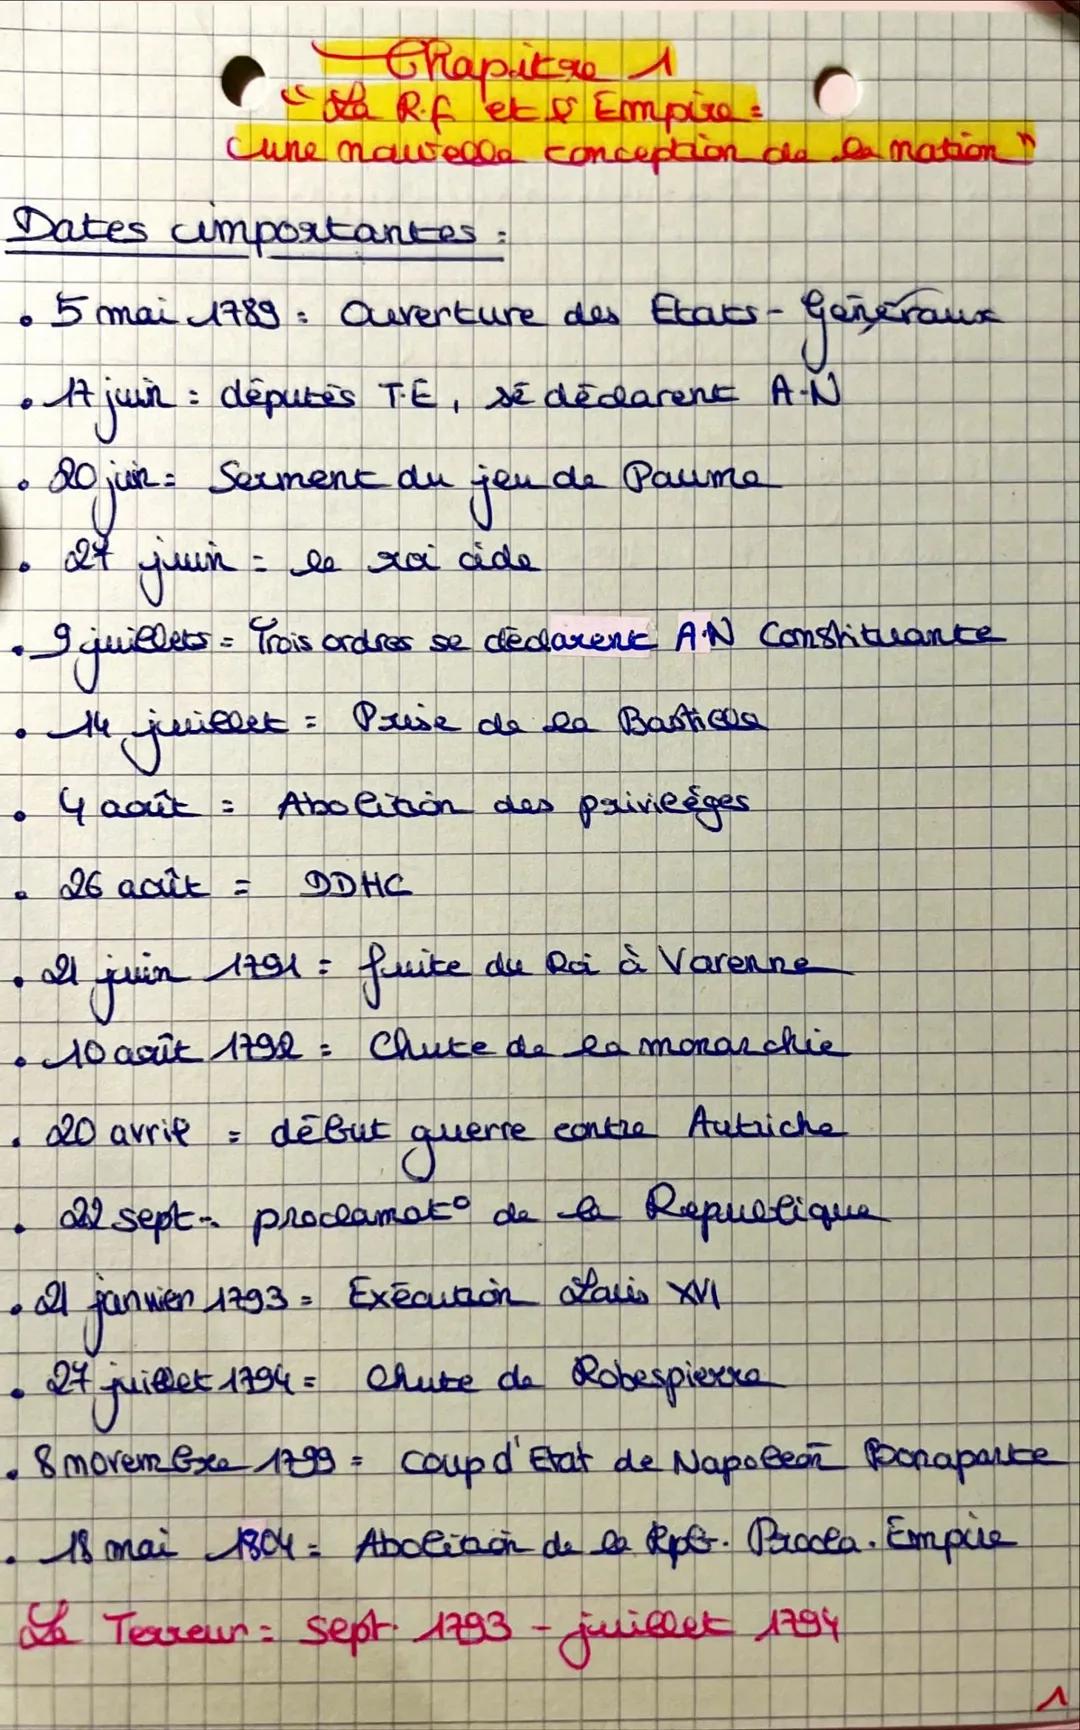 Chapitre 1
"La R.f et l'Empire :
une nouvelle conception de la nation"
Dates importantes :
• 5 mai 1789 : Ouverture des Etats-Généraux
• 17 juin : députés T.E, se déclarent A-N
• 20 juin = Serment du jeu de Paume
• 27 juin = le roi cède
• 9 juillets = Trois ordres se déclarent A.N Constituante
• 14 juillet = Prise de la Bastille
• 4 août = Abolition des privilèges
• 26 août = DDHC
• 21 juin 1791 = fuite du Roi à Varenne
• 10 août 1792 = Chute de la monarchie
• 20 avril = début guerre contre Autriche
• 22 sept - proclamat° de la Republique
• 21 janvier 1793 = Exécution Louis XVI
• 27 juillet 1794 = Chute de Robespierre
• 8 novembre 1799 = coup d'Etat de Napoléon Bonaparte
• 18 mai 1804 = Abolition de la Rpb. Procla. Empire
La Terreur = sept. 1793 - juillet 1794
1